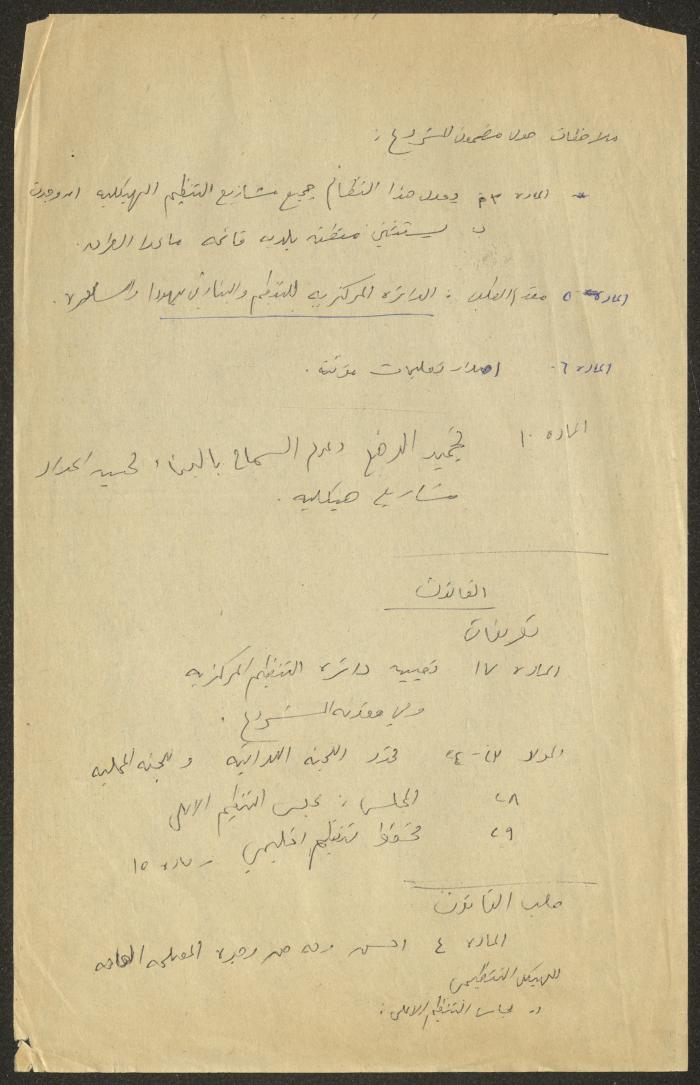 ملاحظات حول مضمون المشروع :
المادة ٣ م يعدل هذا النظام جميع مشاريع التنظيم الهيكلية ان وجدت
ب يستثني منطقة بلدية قائمة ماعدا
المادة ٥ مقدم الطلب : الدائرة المركزية للتنظيم والبناء في يهودا والسامرة .
المادة ٦ . اصدار تعليمات مؤقتة .
المادة ١٠ تجميد الوضع وعدم السماح بالبناء لحين اعداد
مشاريع هيكلية .
القانون
تعريفات
المادة ١٧ تعيين دائرة التنظيم المركزية
المشروع .
المواد ٢٣-٢٤ تحدد اللجنة اللوائية و اللجنة المحلية
٢٨ المجلس : مجلس التنظيم الاعلى
٢٩ مخطط تنظيم اقليمي - مادة ١٥
صلب القانون
المادة ٤ المصلحة العامة
للهيكل التنظيمي
مجلس التنظيم الاعلى :